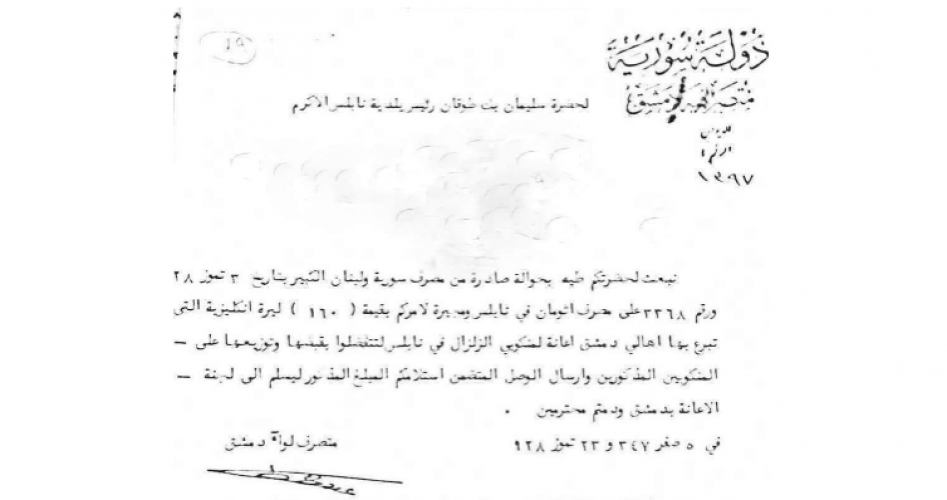 ١٩
دولة سورية
متصرفية لواء دمشق
الديوان
الرقم
١٣٩٧
لحضرة سليمان بك طوقان رئيس بلدية نابلس الاكرم
نبعث لحضرتكم طيه بحوالة صادرة من مصرف سورية ولبنان الكبير بتاريخ ٣ تموز ٢٨
ورقم ٣٣٦٨ على مصرف اتومان في نابلس ومجيرة لامركم بقيمة ( ١٦٠ ) ليرة انكليزية التي
تبرع بها اهالي دمشق اعانة لمنكوبي الزلزال في نابلس لتتفضلوا بقبضها وتوزيعها على –
المنكوبين المذكورين وارسال الوصل المتضمن استلامكم المبلغ المذكور ليسلم الى لجنة –
الاعانة بدمشق ودمتم محترمين .
في ٥ صفر ٣٤٧ و ٢٣ تموز ٩٢٨
متصرف لواء دمشق